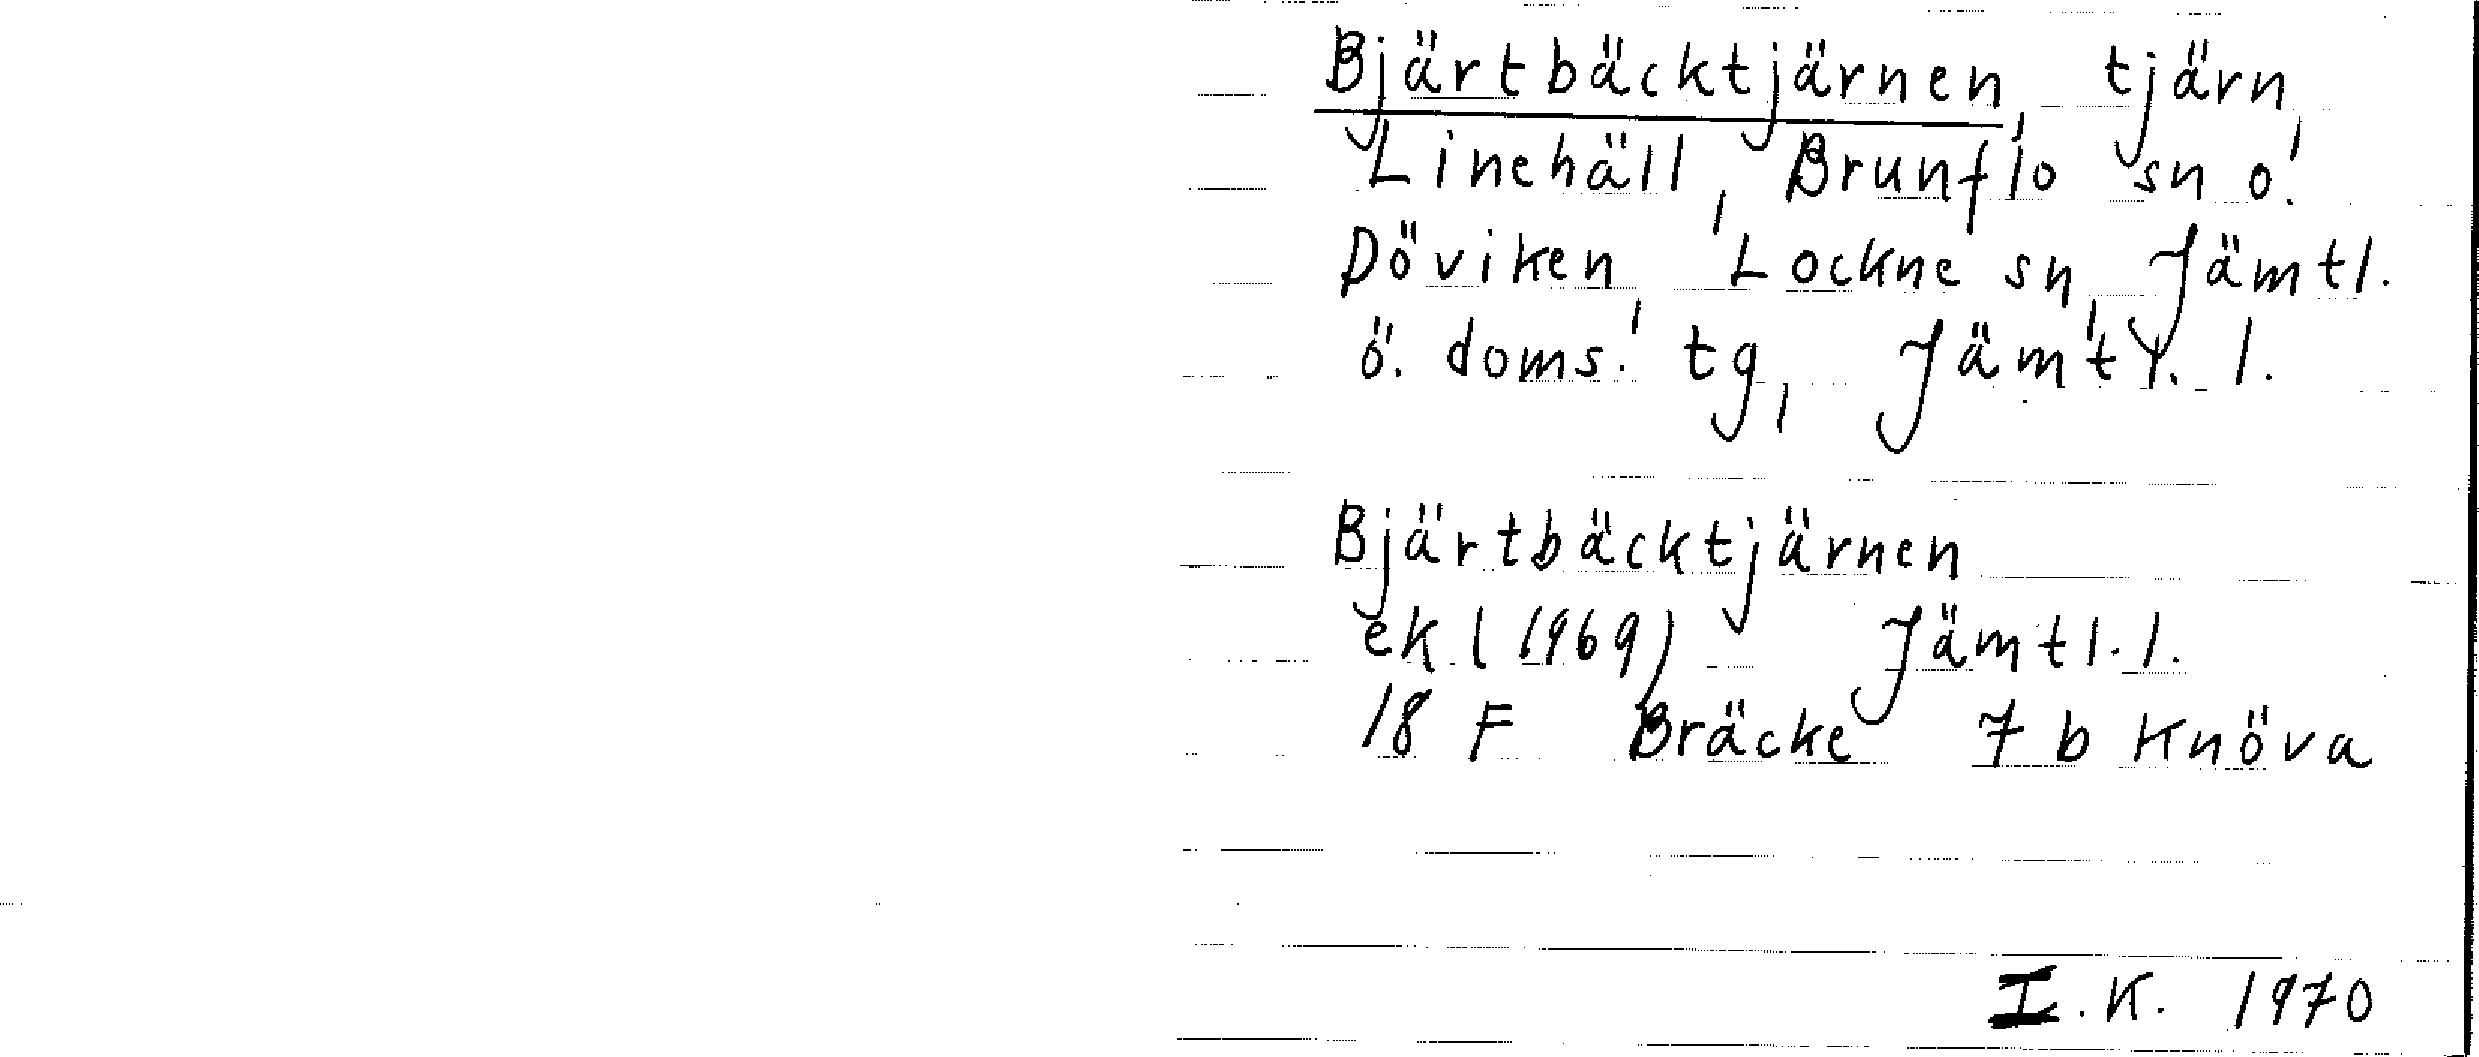 Bjärtbäcktjärnen, tjärn,
Linehäll, Brunflo sn o.
Döviken, Lockne sn, Jämtl.
ö. doms. tg, Jämtl. l.
Bjärtbäcktjärnen
ek (1969) Jämtl. l.
18 F Bräcke 7 b Knöva
I.K. 1970